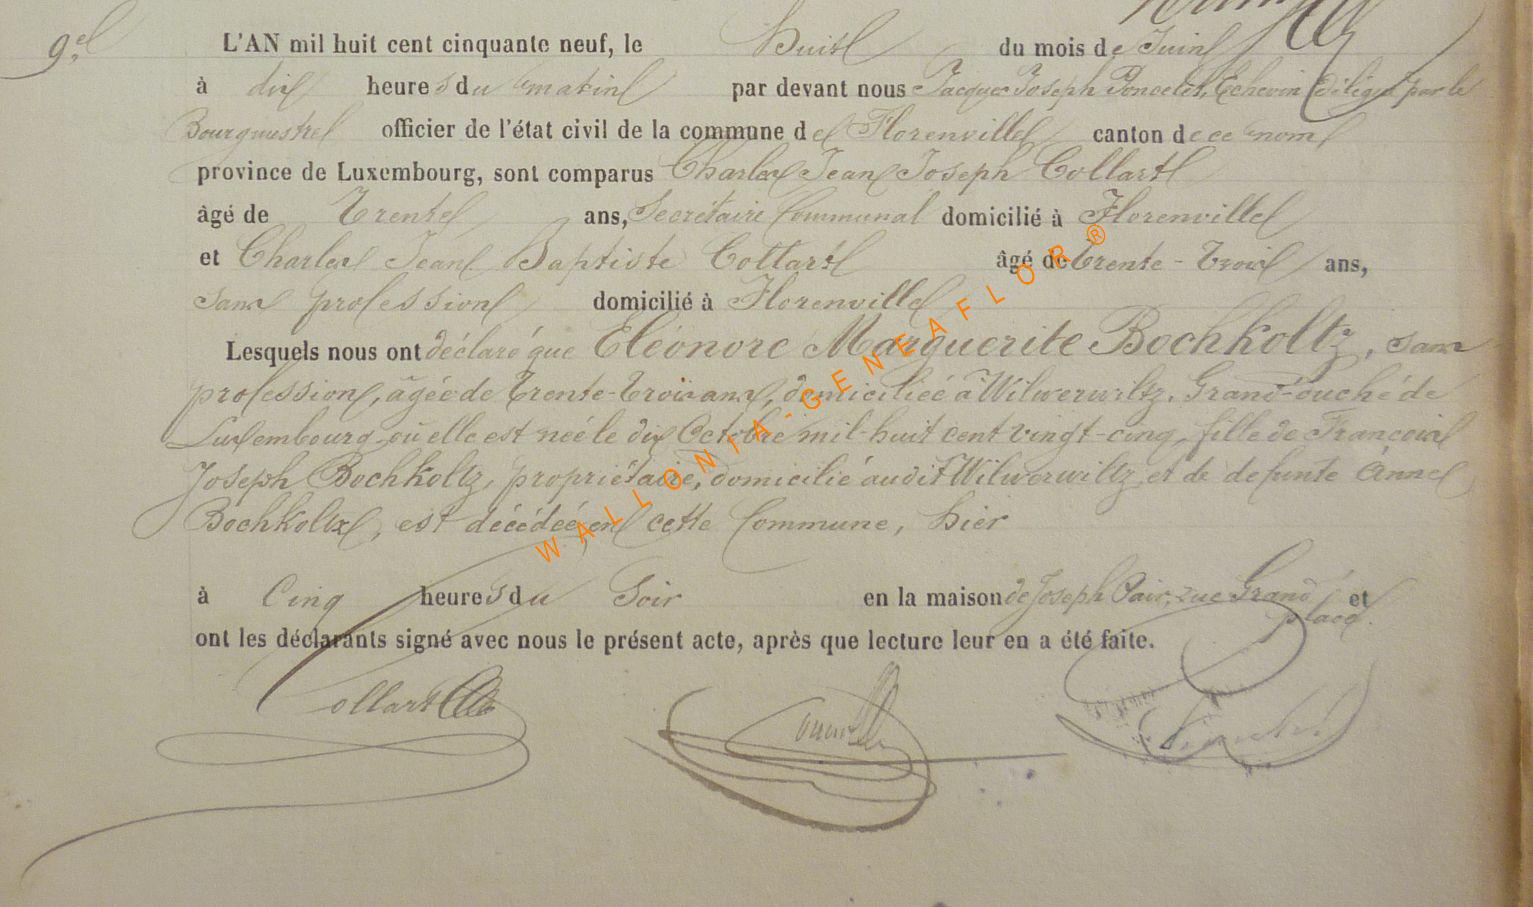 9.e
L'AN mil huit cent cinquante neuf, le huit du mois de Juin
à dix heures du matin par devant nous Jacques Joseph Poncelet, Echevin délégué par le
Bourgmestre officier de l'état civil de la commune de Florenville canton de ce nom
province de Luxembourg, sont comparus Charles Jean Joseph Collart
âgé de Trente ans, Secrétaire Communal domicilié à Florenville
et Charles Jean Baptiste Collart âgé de Trente-Trois ans,
sans profession domicilié à Florenville
Lesquels nous ont déclaré que Eléonore Marguerite Bochkoltz, sans
profession, âgée de Trente-trois ans, domiciliée à Wilwerwiltz, Grand-duché de
Luxembourg où elle est née le dix Octobre mil-huit cent vingt-cinq, fille de François
Joseph Bochkoltz, propriétaire, domicilié audit Wilwerwiltz et de defunte Anne
Bochkoltz, est décédée en cette Commune, hier
à Cinq heures du Soir en la maison de Joseph rue Grand' et
place.
ont les déclarants signé avec nous le présent acte, après que lecture leur en a été faite.
Collart
WALLONIA-GENEAFLOR ®